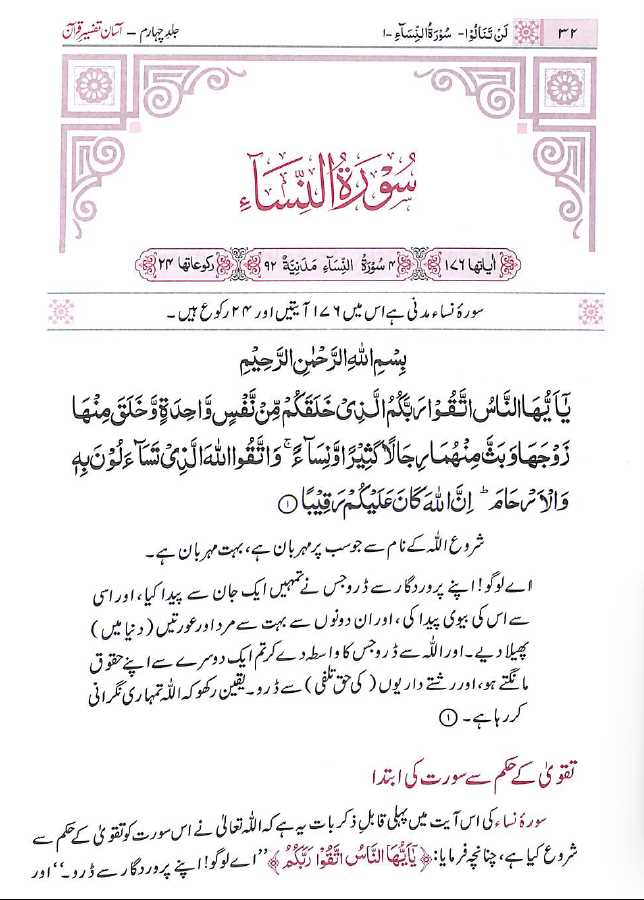 ۳۲ لَنْ تَنَالُوْا- سُوْرَةُ النِّسَآءِ -۱ جلد چہارم – آسان تفسیرِ قرآن
سُوْرَةُ النِّسَآءِ
اٰیاتها ۱۷۶ ۴ سُوْرَةُ النِّسَآءِ مَدَنِیَّةٌ ۹۲ رکوعاتها ۲۴
سورۂ نساء مدنی ہے اس میں ۱۷۶ آیتیں اور ۲۴ رکوع ہیں ۔
بِسْمِ اللهِ الرَّحْمٰنِ الرَّحِیْمِ
یٰۤاَیُّهَا النَّاسُ اتَّقُوْا رَبَّكُمُ الَّذِیْ خَلَقَكُمْ مِّنْ نَّفْسٍ وَّاحِدَةٍ وَّخَلَقَ مِنْهَا
زَوْجَهَا وَبَثَّ مِنْهُمَا رِجَالًا كَثِیْرًا وَّنِسَآءً ۚ وَاتَّقُوا اللهَ الَّذِیْ تَسَآءَلُوْنَ بِهٖ
وَالْاَرْحَامَ ؕ اِنَّ اللهَ كَانَ عَلَیْكُمْ رَقِیْبًا ۱
شروع اللہ کے نام سے جو سب پر مہربان ہے، بہت مہربان ہے۔
اے لوگو! اپنے پروردگار سے ڈرو جس نے تمہیں ایک جان سے پیدا کیا، اور اسی
سے اس کی بیوی پیدا کی، اور ان دونوں سے بہت سے مرد اور عورتیں (دنیا میں)
پھیلا دیے۔ اور اللہ سے ڈرو جس کا واسطہ دے کر تم ایک دوسرے سے اپنے حقوق
مانگتے ہو، اور رشتے داریوں (کی حق تلفی) سے ڈرو۔ یقین رکھو کہ اللہ تمہاری نگرانی
کر رہا ہے۔ ۱
تقویٰ کے حکم سے سورت کی ابتدا
سورۂ نساء کی اس آیت میں پہلی قابلِ ذکر بات یہ ہے کہ اللہ تعالیٰ نے اس سورت کو تقویٰ کے حکم سے
شروع کیا ہے، چنانچہ فرمایا: ﴿یٰۤاَیُّهَا النَّاسُ اتَّقُوْا رَبَّكُمُ﴾ ’’اے لوگو! اپنے پروردگار سے ڈرو۔‘‘ اور